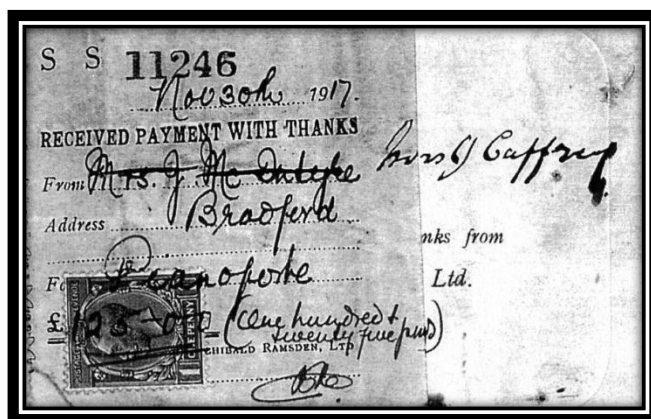 S S 11246
Nov 30th 1917.
RECEIVED PAYMENT WITH THANKS
From Mrs. J. Mc Mrs J Caffrey
Address Bradford
nks from
Fo Pianoforte Ltd.
£125-0-0 (One hundred &
twenty five pund)
CHIBALD RAMSDEN, LTD